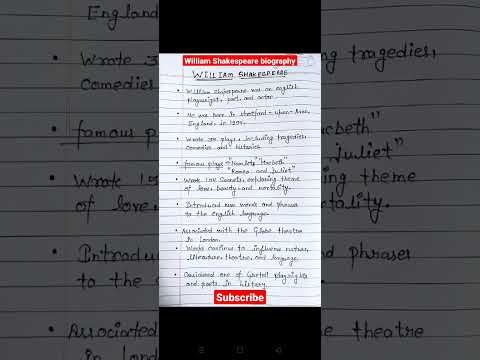 William Shakespeare biography
WILLIAM SHAKESPEARE
• William Shakespeare was an english
playwright, poet, and actor.
• He was born in stratford-upon-Avon,
England, in 1564.
• Wrote plays, including tragedies,
comedies and histories.
• famous plays - "Hamlet" "Macbeth"
"Romeo and juliet"
• Wrote 154 Sonnets, exploring theme
of love, beauty and mortality.
• Introduced new words and phrases
to the english language.
• Associated with the Globe theatre
in London.
• Works continue to influence
literature, theatre, and language.
• Considered one of playwrights
and poets in history.
Subscribe
England
• Wrote 3
comedies
ing tragedies,
famous p
cbeth"
juliet"
• Wrote 15
of love.
ing theme
tality.
• Introdu
to the
d phrases
• Associated
in lond
theatre